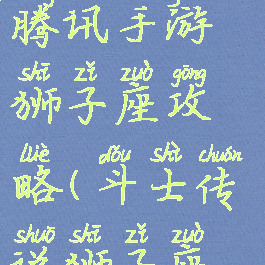 腾讯手游
shī zǐ zuò gōng
狮子座攻
lüè dǒu shì chuán
略(斗士传
shuō shī zǐ zuò
说狮子座